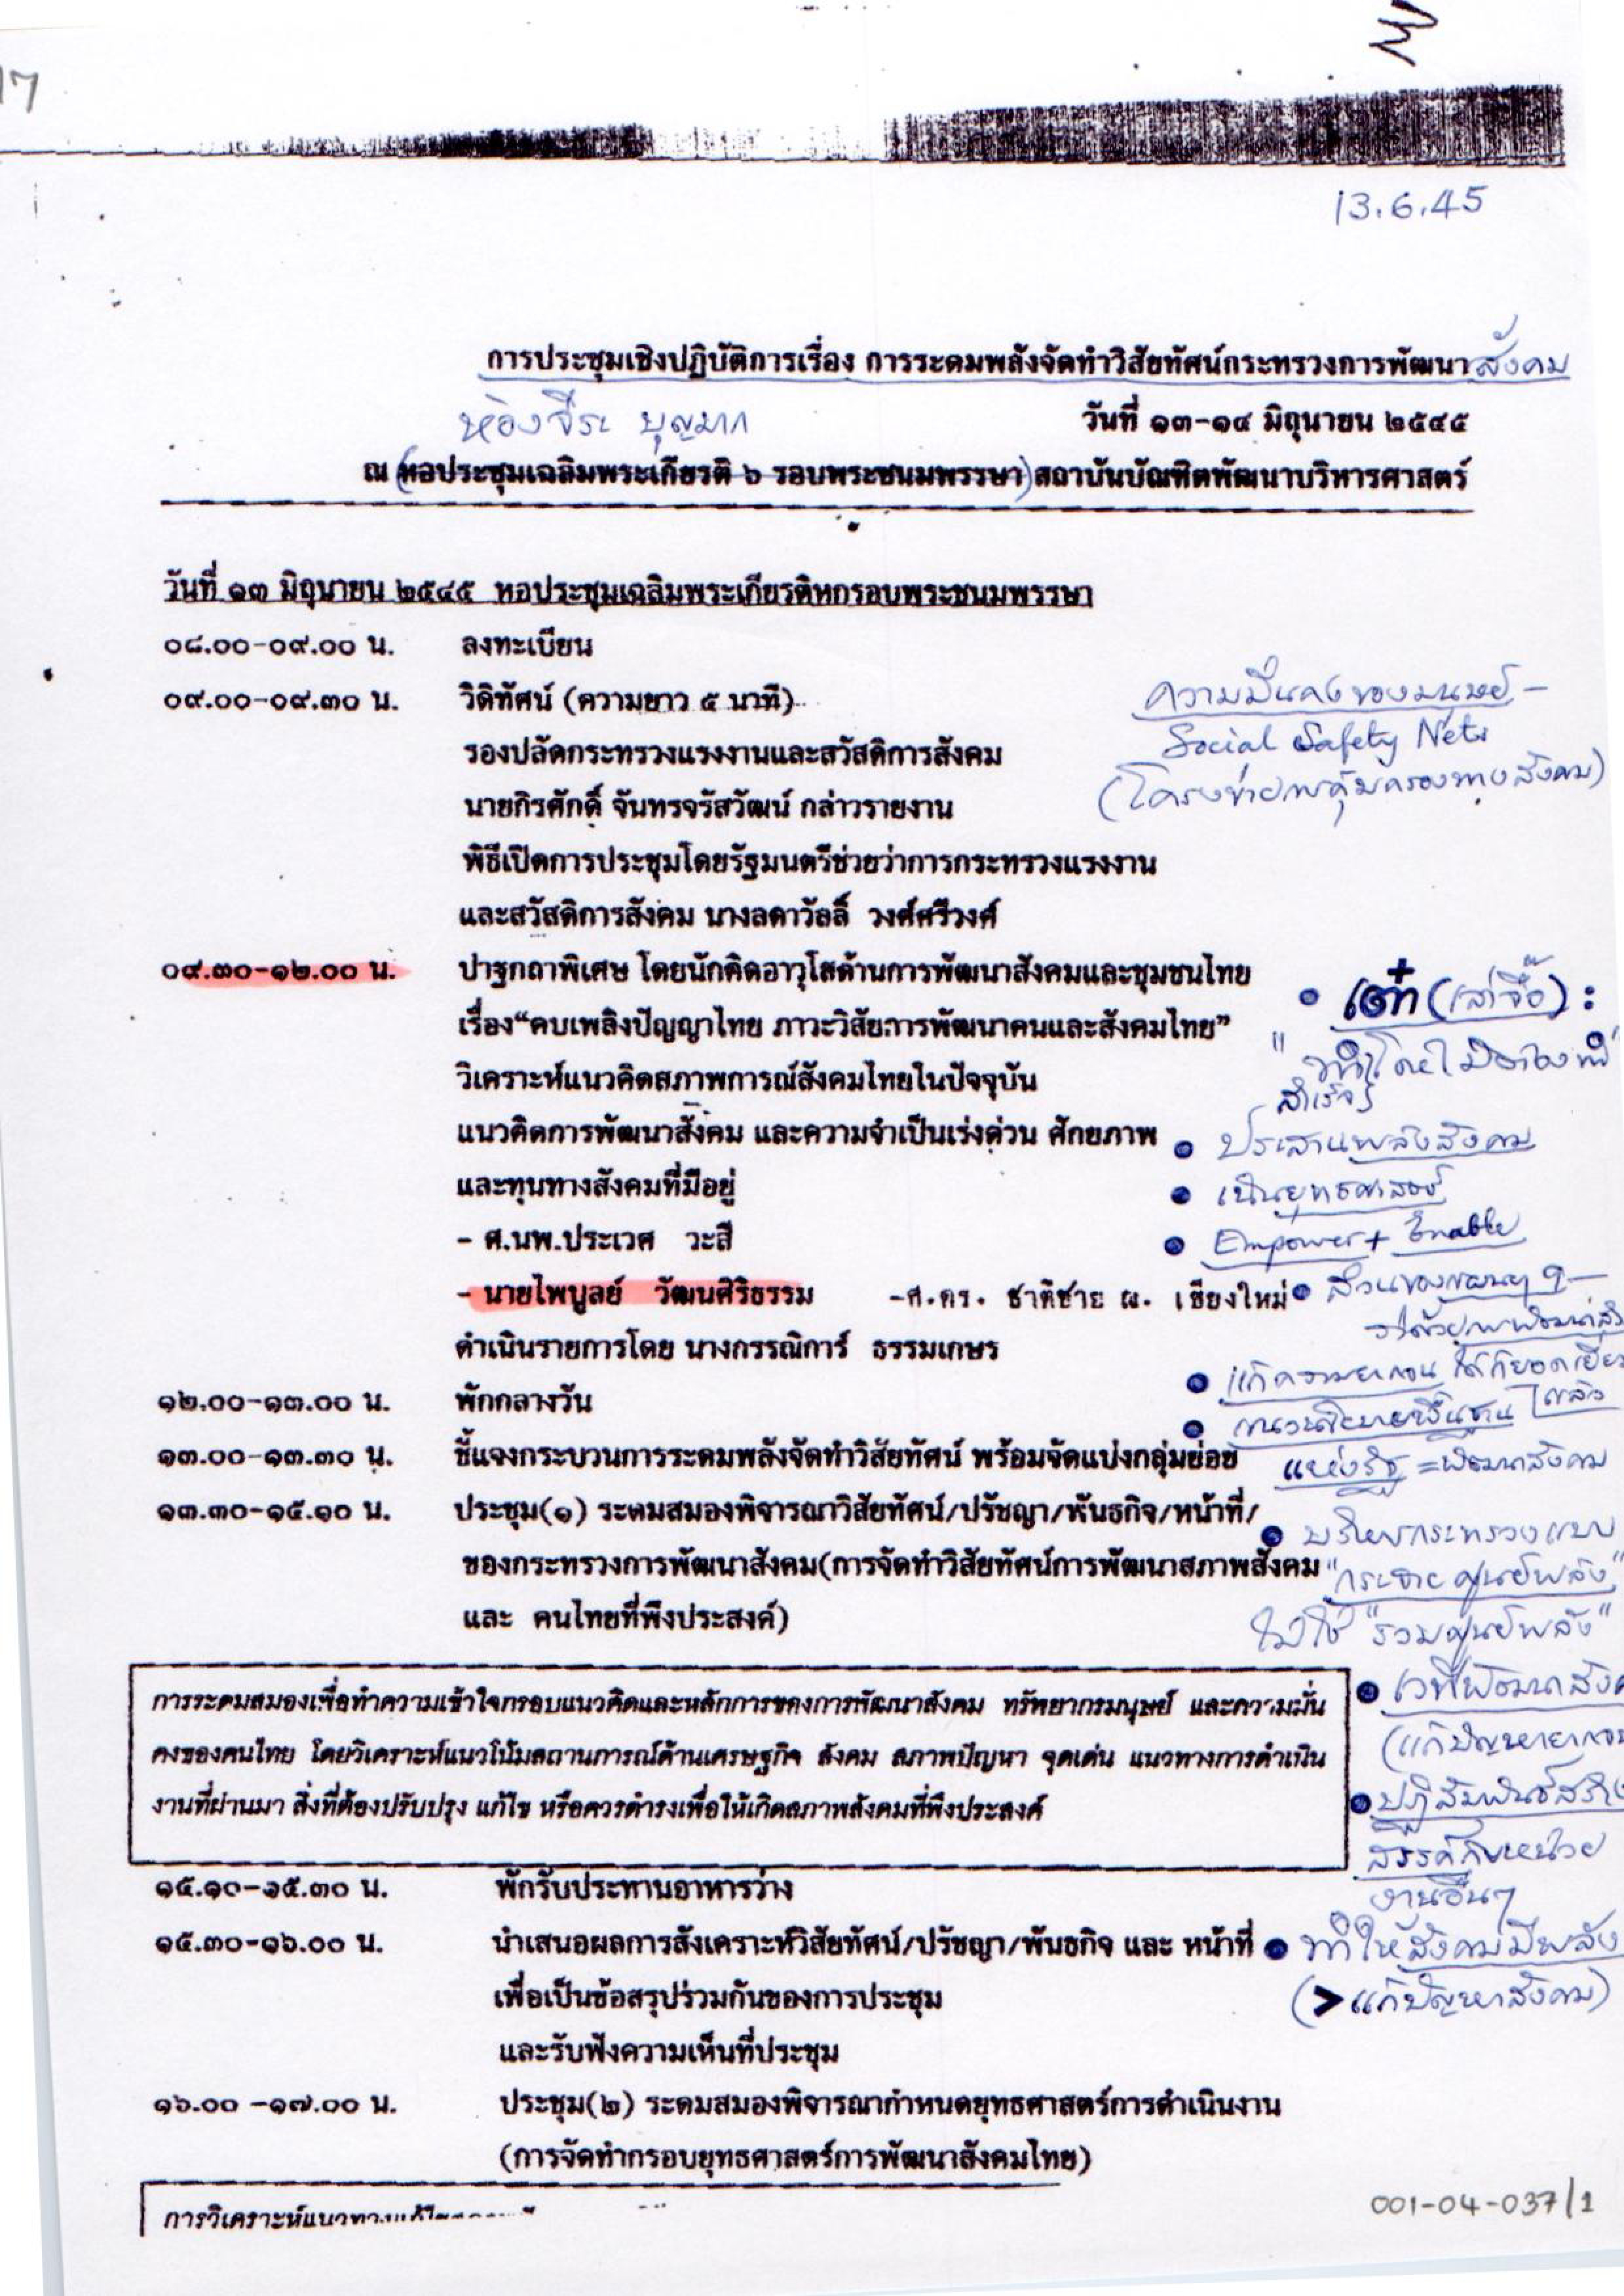 17
13.6.45
การประชุมเชิงปฏิบัติการเรื่อง การระดมพลังจัดทำวิสัยทัศน์กระทรวงการพัฒนาสังคม
ห้องจีระ บุญมาก
วันที่ ๑๓-๑๔ มิถุนายน ๒๕๔๕
ณ (หอประชุมเฉลิมพระเกียรติ ๖ รอบพระชนมพรรษา) สถาบันบัณฑิตพัฒนาบริหารศาสตร์
วันที่ ๑๓ มิถุนายน ๒๕๔๕ หอประชุมเฉลิมพระเกียรติหกรอบพระชนมพรรษา
๐๘.๐๐-๐๙.๐๐ น. ลงทะเบียน
๐๙.๐๐-๐๙.๓๐ น. วิดิทัศน์ (ความยาว ๕ นาที)
ความมั่นคงของมนุษย์ -
Social Safety Nets
(โครงข่ายการคุ้มครองทางสังคม)
รองปลัดกระทรวงแรงงานและสวัสดิการสังคม
นายกิรศักดิ์ จันทรจรัสวัฒน์ กล่าวรายงาน
พิธีเปิดการประชุมโดยรัฐมนตรีช่วยว่าการกระทรวงแรงงาน
และสวัสดิการสังคม นางลดาวัลลิ์ วงศ์ศรีวงศ์
๐๙.๓๐-๑๒.๐๐ น. ปาฐกถาพิเศษ โดยนักคิดอาวุโสด้านการพัฒนาสังคมและชุมชนไทย
เรื่อง“คบเพลิงปัญญาไทย ภาวะวิสัยการพัฒนาคนและสังคมไทย”
วิเคราะห์แนวคิดสภาพการณ์สังคมไทยในปัจจุบัน
แนวคิดการพัฒนาสังคม และความจำเป็นเร่งด่วน ศักยภาพ
และทุนทางสังคมที่มีอยู่
- ศ.นพ.ประเวศ วะสี
- นายไพบูลย์ วัฒนศิริธรรม -ศ.ดร. ชาติชาย ณ. เชียงใหม่
ดำเนินรายการโดย นางกรรณิการ์ ธรรมเกษร
• เต๋า (เล่าจื๊อ) :
สำเร็จ
• ประสานพลังสังคม
• เน้นยุทธศาสตร์
• Empower + Enable
• แก้ความยากจน ได้ก็ยอดเยี่ยม
แล้ว
• แนวนโยบายพื้นฐาน
แห่งรัฐ = พัฒนาสังคม
๑๒.๐๐-๑๓.๐๐ น. พักกลางวัน
๑๓.๐๐-๑๓.๓๐ น. ชี้แจงกระบวนการระดมพลังจัดทำวิสัยทัศน์ พร้อมจัดแบ่งกลุ่มย่อย
๑๓.๓๐-๑๕.๑๐ น. ประชุม(๑) ระดมสมองพิจารณาวิสัยทัศน์/ปรัชญา/พันธกิจ/หน้าที่/
ของกระทรวงการพัฒนาสังคม(การจัดทำวิสัยทัศน์การพัฒนาสภาพสังคม
และ คนไทยที่พึงประสงค์)
• บริหารกระทรวงแบบ
"กระจายศูนย์พลัง"
ไม่ใช่ "รวมศูนย์พลัง"
การระดมสมองเพื่อทำความเข้าใจกรอบแนวคิดและหลักการของการพัฒนาสังคม ทรัพยากรมนุษย์ และความมั่น
คงของคนไทย โดยวิเคราะห์แนวโน้มสถานการณ์ด้านเศรษฐกิจ สังคม สภาพปัญหา จุดเด่น แนวทางการดำเนิน
งานที่ผ่านมา สิ่งที่ต้องปรับปรุง แก้ไข หรือควรดำรงเพื่อให้เกิดสภาพสังคมที่พึงประสงค์
• ปฏิสัมพันธ์สร้าง
สรรค์กับหน่วย
งานอื่นๆ
๑๕.๑๐-๑๕.๓๐ น. พักรับประทานอาหารว่าง
๑๕.๓๐-๑๖.๐๐ น. นำเสนอผลการสังเคราะห์วิสัยทัศน์/ปรัชญา/พันธกิจ และ หน้าที่
เพื่อเป็นข้อสรุปร่วมกันของการประชุม
และรับฟังความเห็นที่ประชุม
• ทำให้สังคมมีพลัง
(> แก้ปัญหาสังคม)
๑๖.๐๐ -๑๗.๐๐ น. ประชุม(๒) ระดมสมองพิจารณากำหนดยุทธศาสตร์การดำเนินงาน
(การจัดทำกรอบยุทธศาสตร์การพัฒนาสังคมไทย)
การวิเคราะห์แนวทาง
001-04-037/1